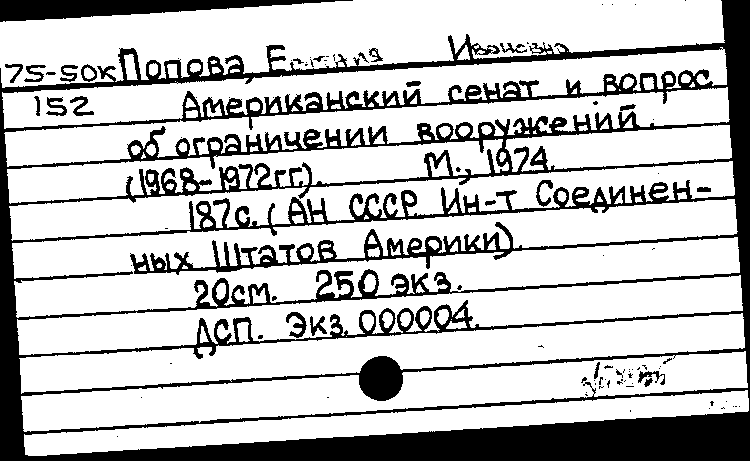 75-50к Попова, Евгения Ивановна
152 Американский сенат и вопрос
об ограничении вооружений.
(1968-1972гг). М., 1974.
187с. (АН СССР. Ин-т Соединен-
ных Штатов Америки).
20см. 250 экз.
ДСП. Экз. 000004.